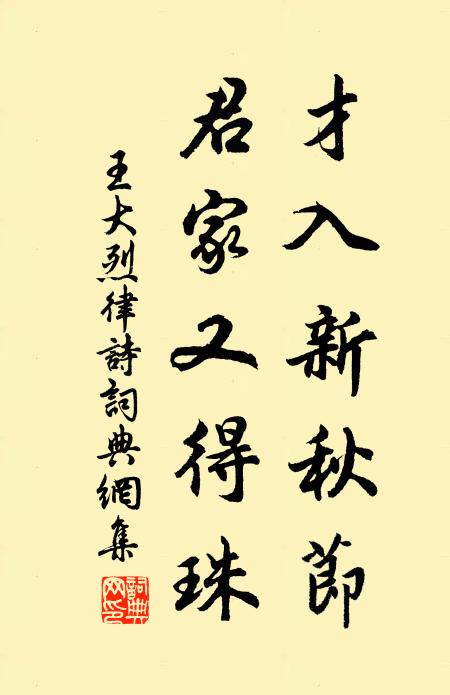 才入新秋節
君家又得珠
王大烈律詩詞典網集
詞典
网印